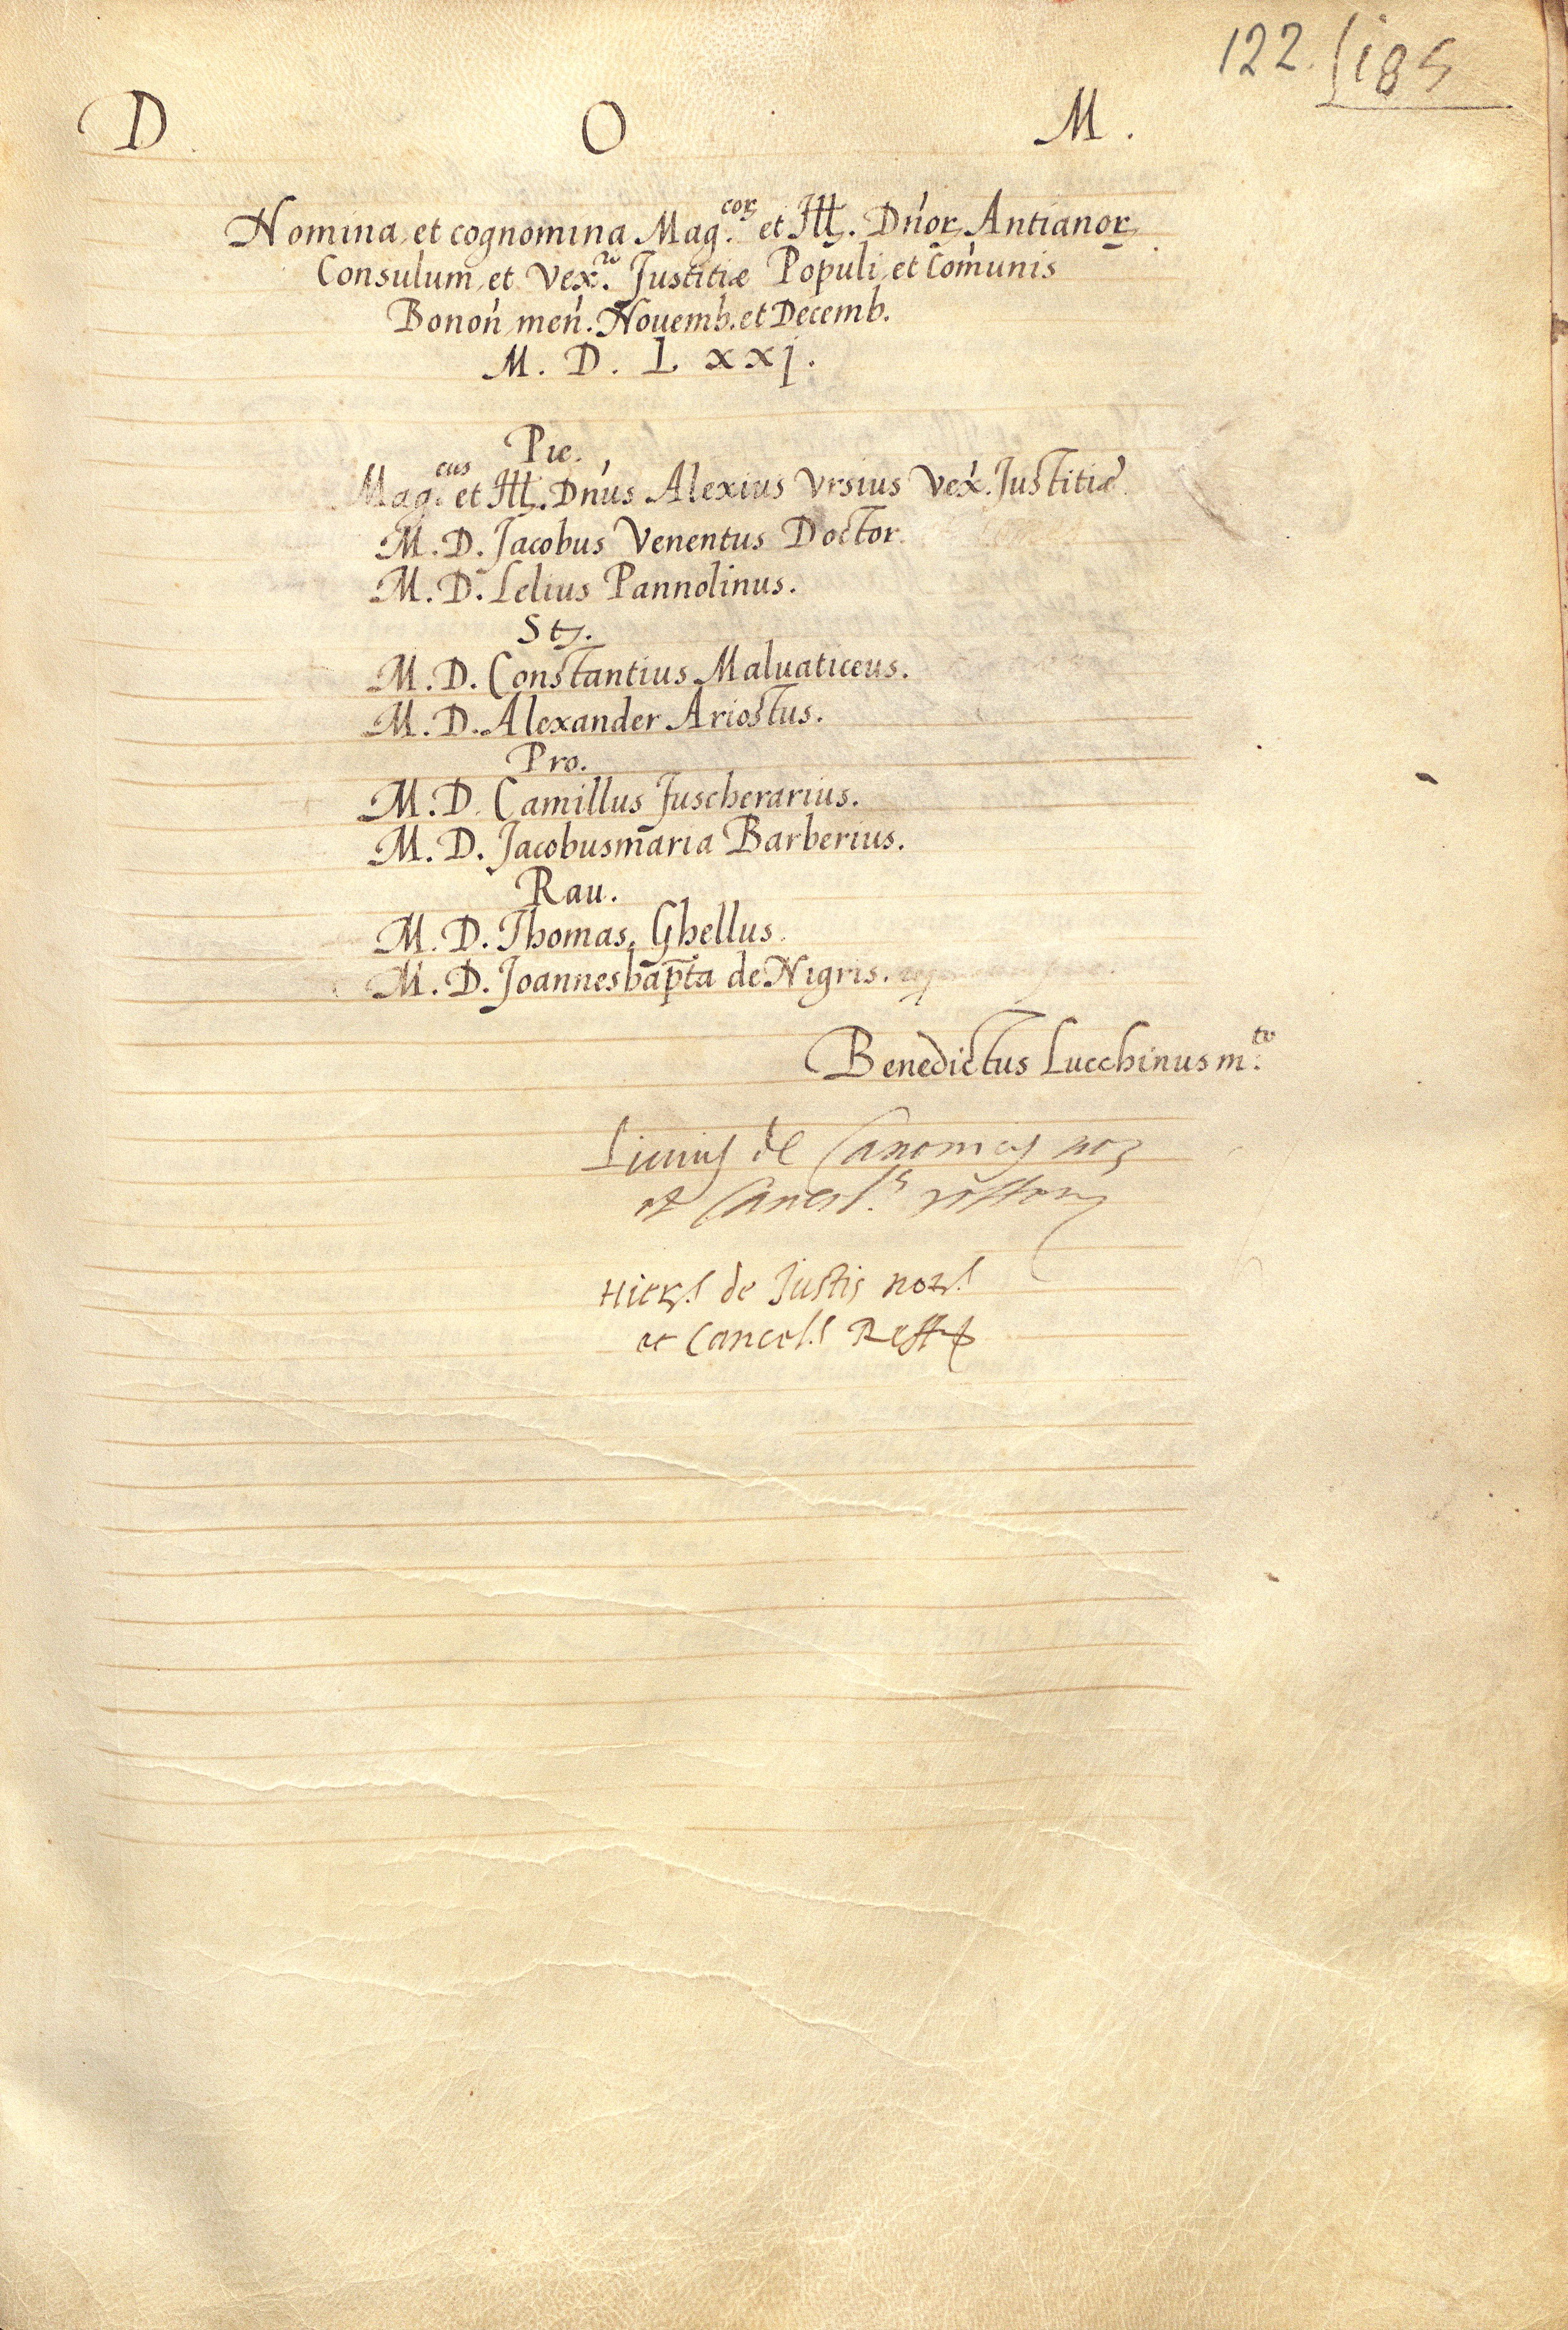 122. 185
D O M.
Nomina et cognomina Mag.coꝝ et Ill. Dn̄oꝝ Antianoꝝ
Consulum et Vex.ri Justitiæ Populi et Com̄unis
Bonon̄ men̄. Nouemb. et Decemb.
M. D. L xxj.
Pie.
Mag.cus et Ill. Dn̄us Alexius Vrsius Vex̄. Justitiæ
M. D. Jacobus Venentus Doctor.
M. D. Lelius Pannolinus.
St
M. D. Constantius Maluaticeus.
M. D. Alexander Ariostus.
Pro.
M. D. Camillus Fuscherarius.
M. D. Jacobusmaria Barberius.
Rau.
M. D. Thomas Ghellus.
M. D. Joannesbap̄ta de Nigris.
Benedictus Lucchinus m.to
de Canonicis
et Cancel.s
de Justis
et Cancel.s